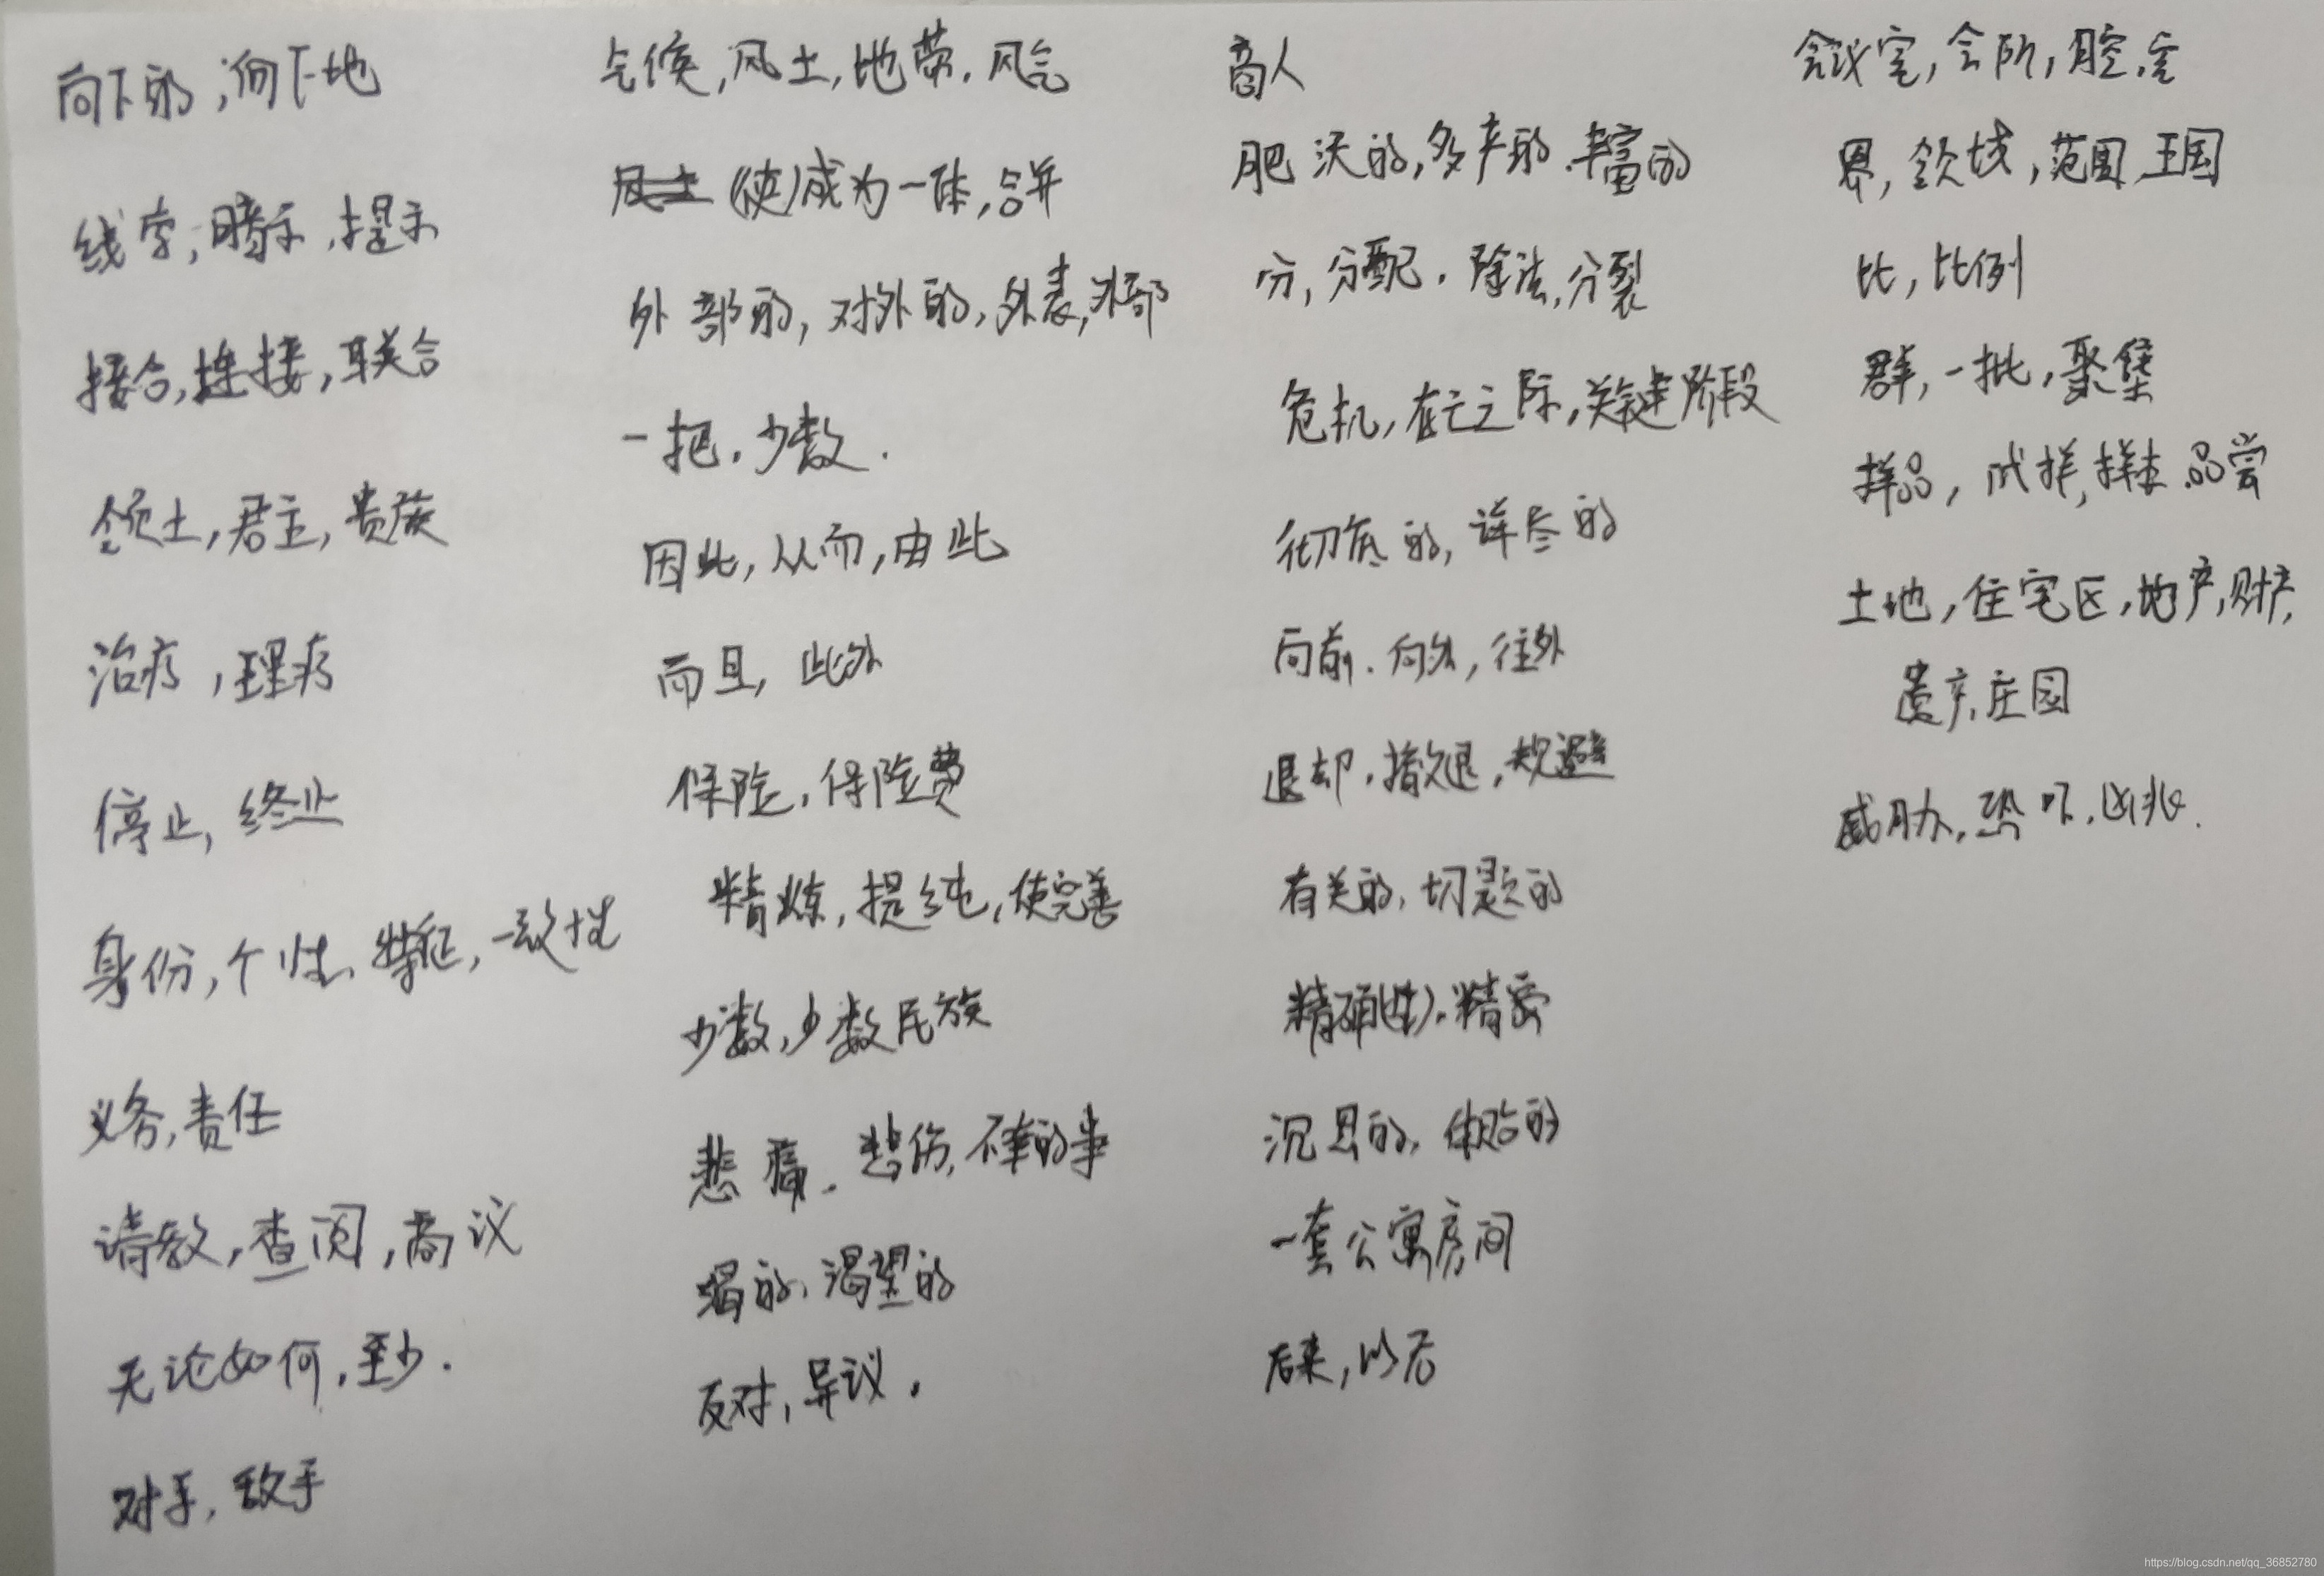 向下的,向下地
线字,暗示,提示
接合,连接,联合
领土,君主,贵族
治疗,理疗
停止,终止
身份,个性,特征,一致性
义务,责任
请教,查阅,商议
无论如何,至少.
对手,敌手
气候,风土,地带,风气
(使)成为一体,合并
外部的,对外的,外表,外部
一把,少数.
因此,从而,由此
而且,此外
保险,保险费
精炼,提纯,使完善
少数,少数民族
悲痛,悲伤,不幸的事
渴的,渴望的
反对,异议,
商人
肥沃的,多产的,丰富的
分,分配,除法,分裂
危机,存亡之际,关键阶段
彻底的,详尽的
向前,向外,往外
退却,撤退,规避
有关的,切题的
精确(性),精密
沉思的,体贴的
一套公寓房间
后来,以后
会议室,会所,腔,室
界,领域,范围,王国
比,比例
群,一批,聚堡
样品,试样,样本,品尝
土地,住宅区,地产,财产,
遗产,庄园
威胁,恐吓,凶兆.
https://blog.csdn.net/qq_36852780